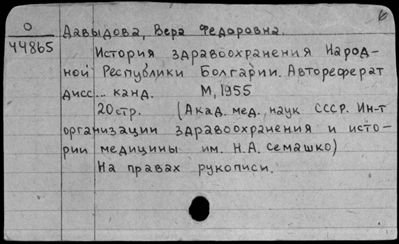 б
О
44865
Давыдова, Вера Федоровна.
История здравоохранения Народ-
ной Республики Болгарии. Автореферат
дисс... канд. М, 1955
20стр. (Акад. мед. наук СССР. Ин-т
организации здравоохранения и исто-
рии медицины им. Н.А. Семашко)
На правах рукописи.